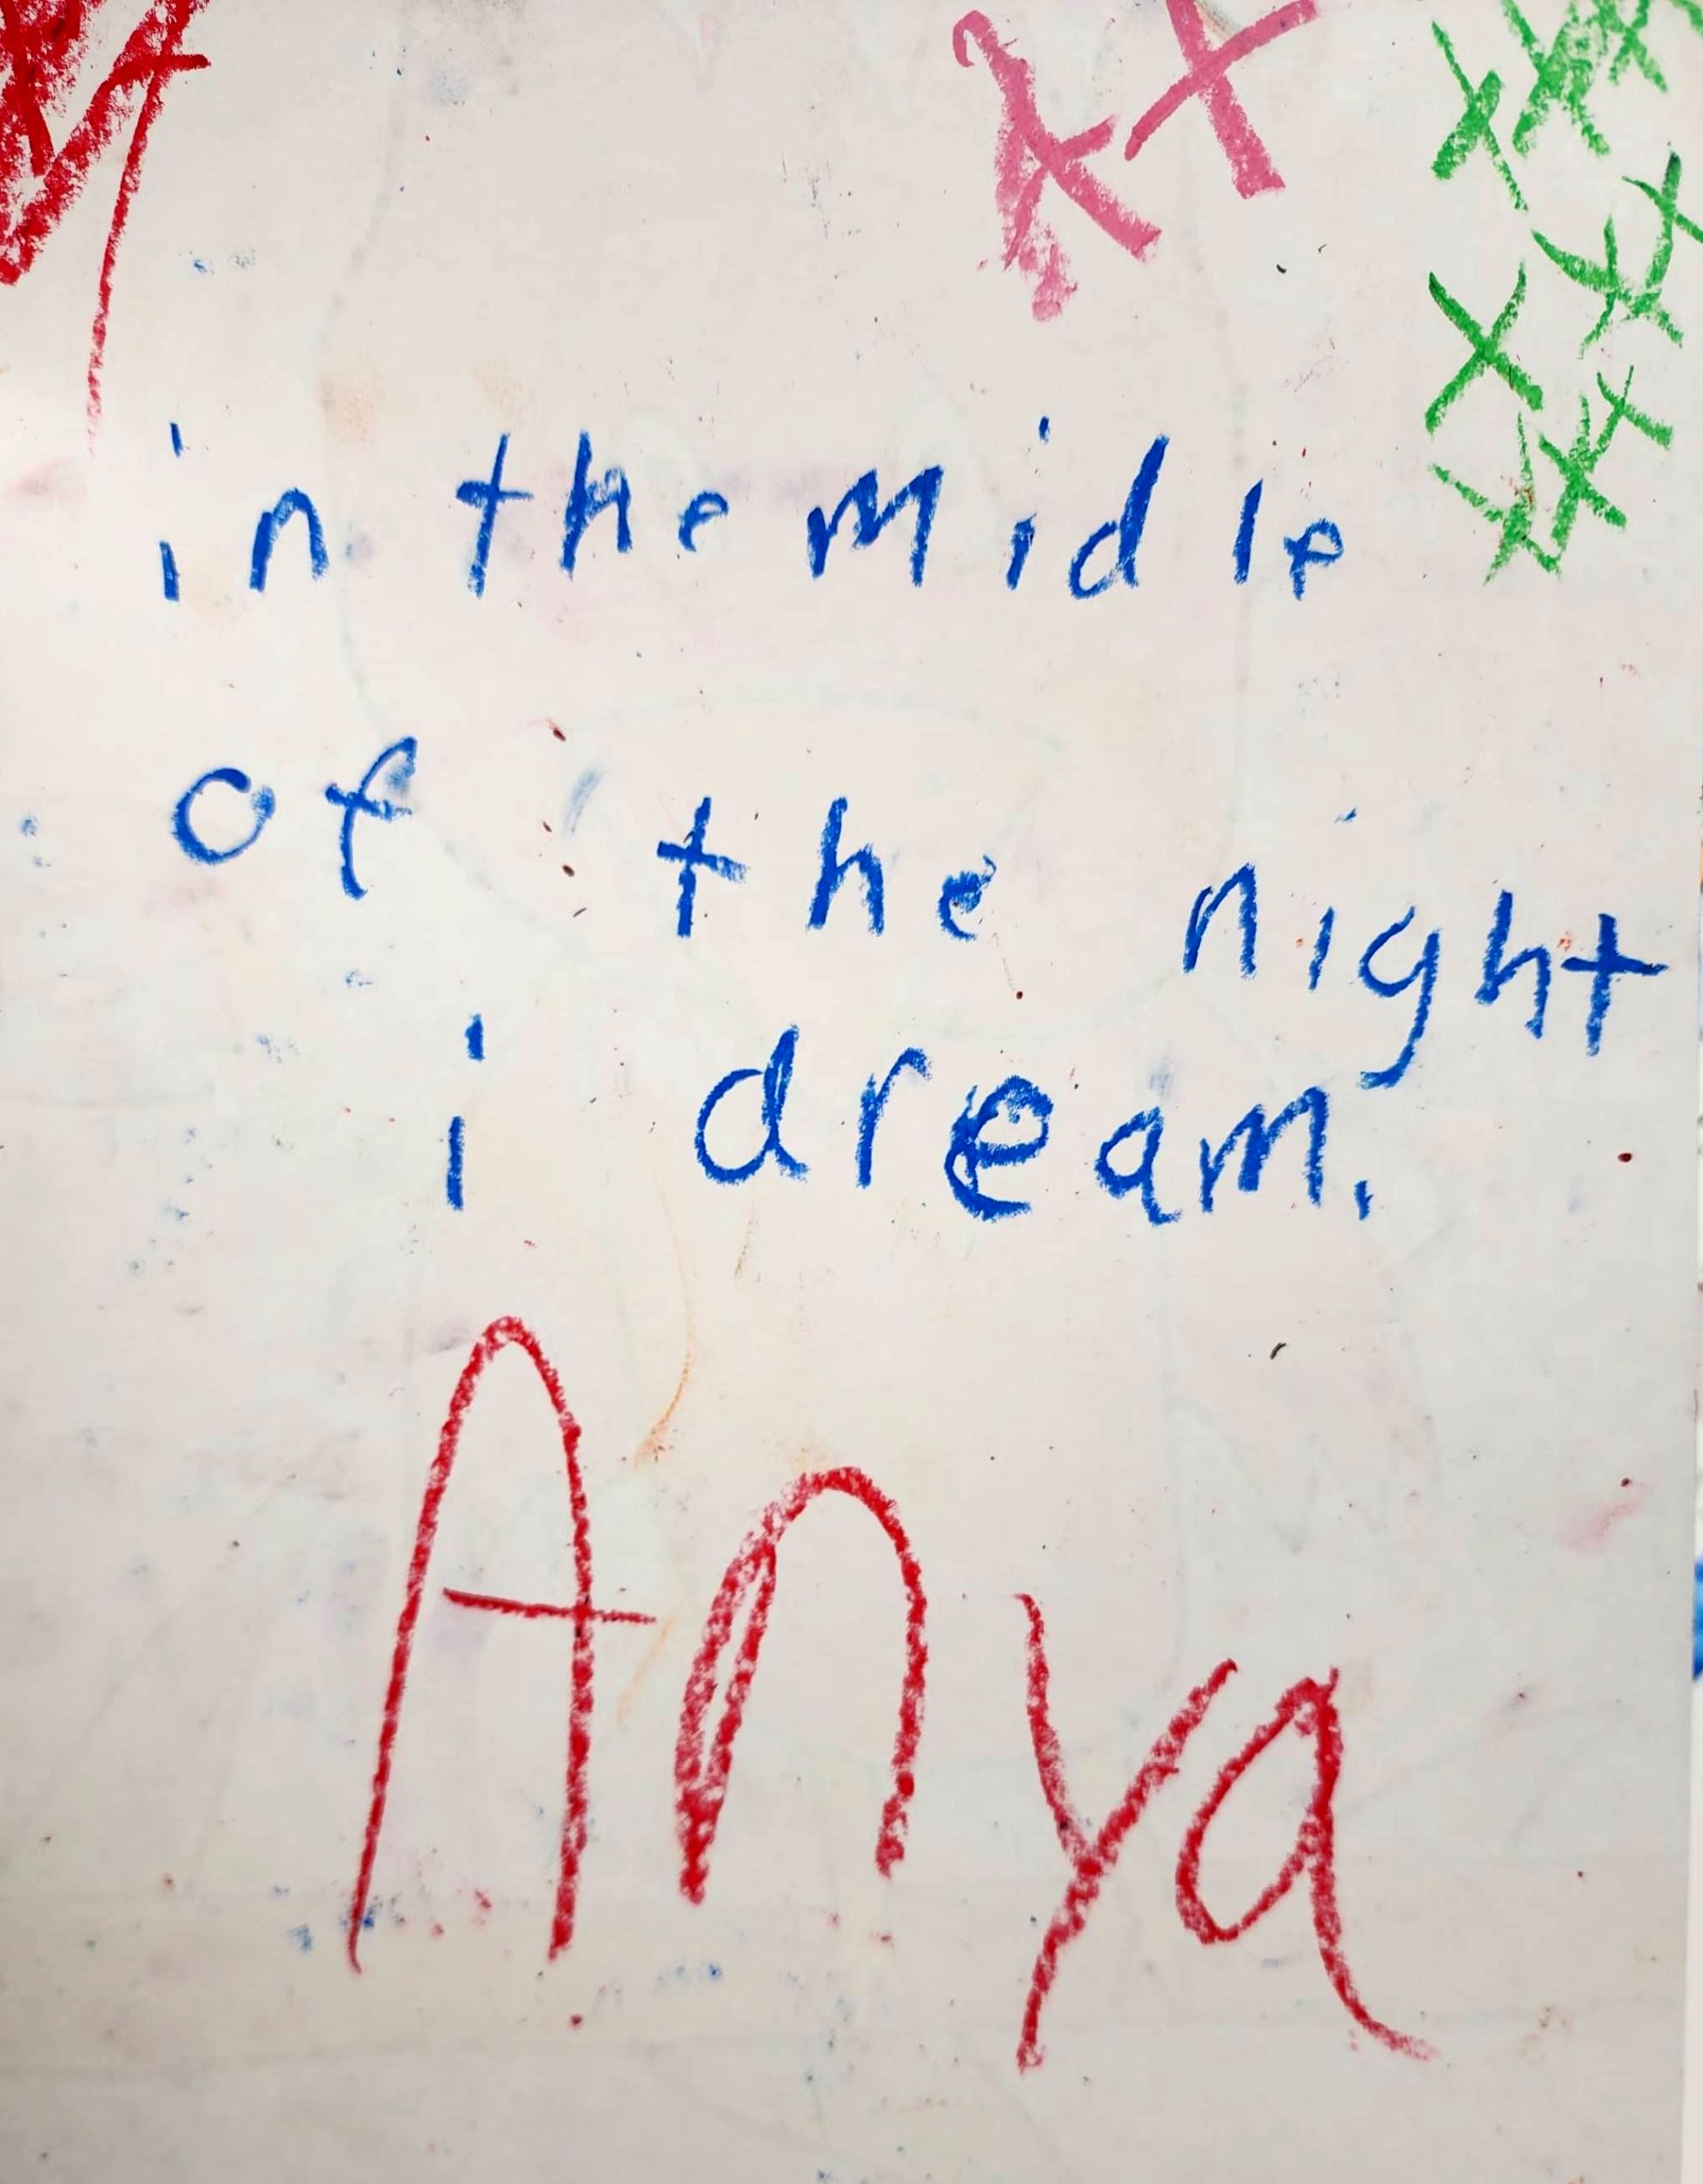 in the midle
of the night
i dream.
Anya